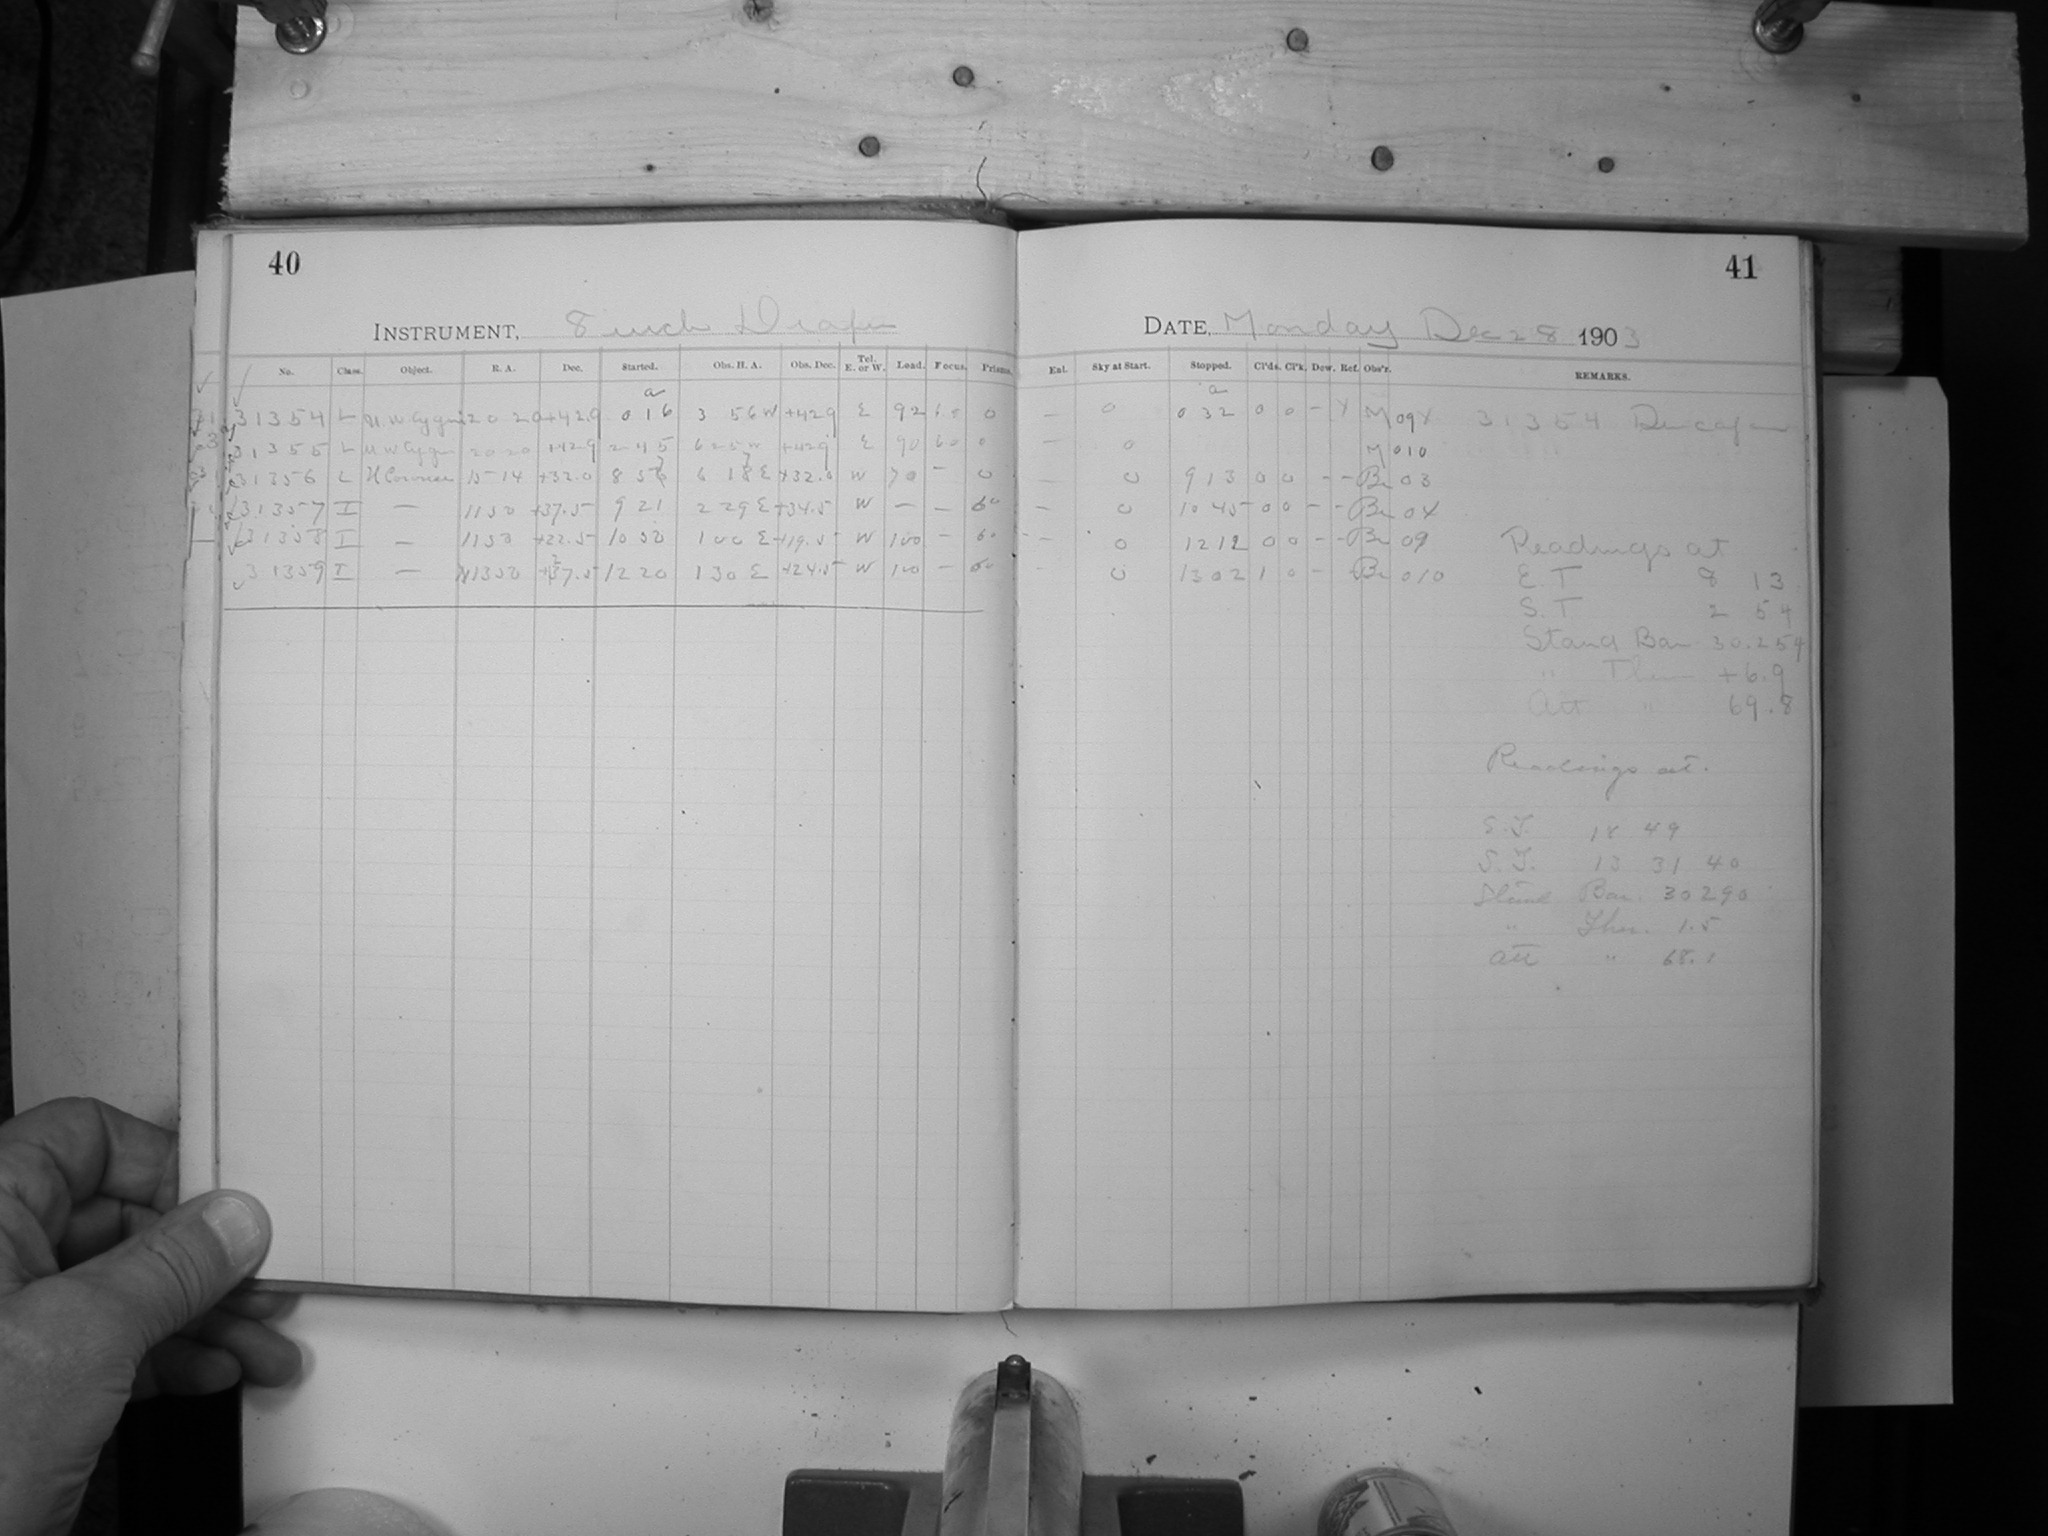 40
INSTRUMENT, 8 inch Draper
No. Class. Object. R. A. Dec. Started. Obs. H. A. Obs. Dec. Tel. E. or W. Lead. Focus. Prisms.
31354 L U. W Cygni 20 20 +42.9 0 16 3 56 W +42.9 E 92 60 0
31355 L U W Cygni 20 20 +42.9 2 45 6 25 W +42.9 E 90 60 0
31356 L 15 14 +32.0 8 56 6 18 E +32.0 W 70 – 0
31357 I — 1150 +37.5 9 21 2 29 E +34.5 W — — 60
31358 I — 1150 +22.5 10 50 1 00 E +19.5 W 100 – 60
31359 I — 1350 12 20 1 30 E +24.5 W 100 – 60
41
DATE, Monday Dec 28 1903
Eal. Sky at Start. Stopped. Cl'ds. Cl'k. Dew. Ref. Obs'r. REMARKS.
– 0 0 32 0 0 – Y M 09 X 31354
– 0 M 010
– 0 9 13 0 0 – – Br 03
– 0 10 45 0 0 – – Br 04
– 0 12 12 0 0 – – Br 09
– 0 13 02 1 0 – Br 010
Readings at
E. T 8 13
S. T 2 54
Stand Bar 30.254
" Ther +6.9
Att " 69.8
Readings at.
E. T. 18 49
S. T. 13 31 40
Stand Bar. 30290
" Ther. 1.5
Att " 68.1